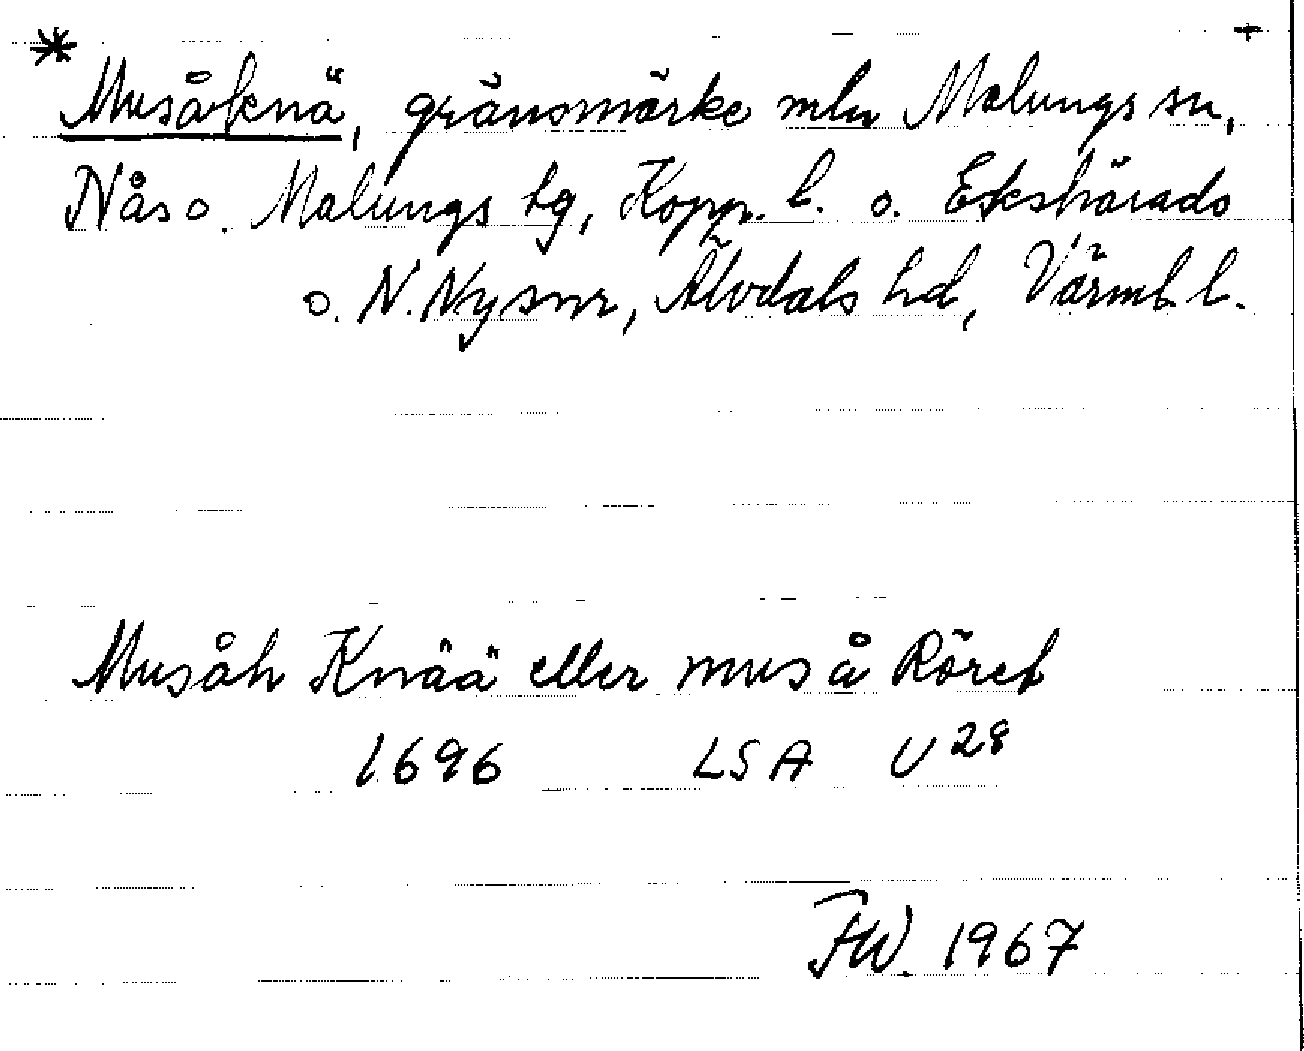 * +
Musåknä, gränsmärke mln Malungs sn,
Nås o. Malungs tg, Kopp. l. o. Ekshärads
o. N. Ny snr, Älvdals hd, Värml. l.
Musåh Knää eller mus å Röret
1696 LSA U 28
FW. 1967